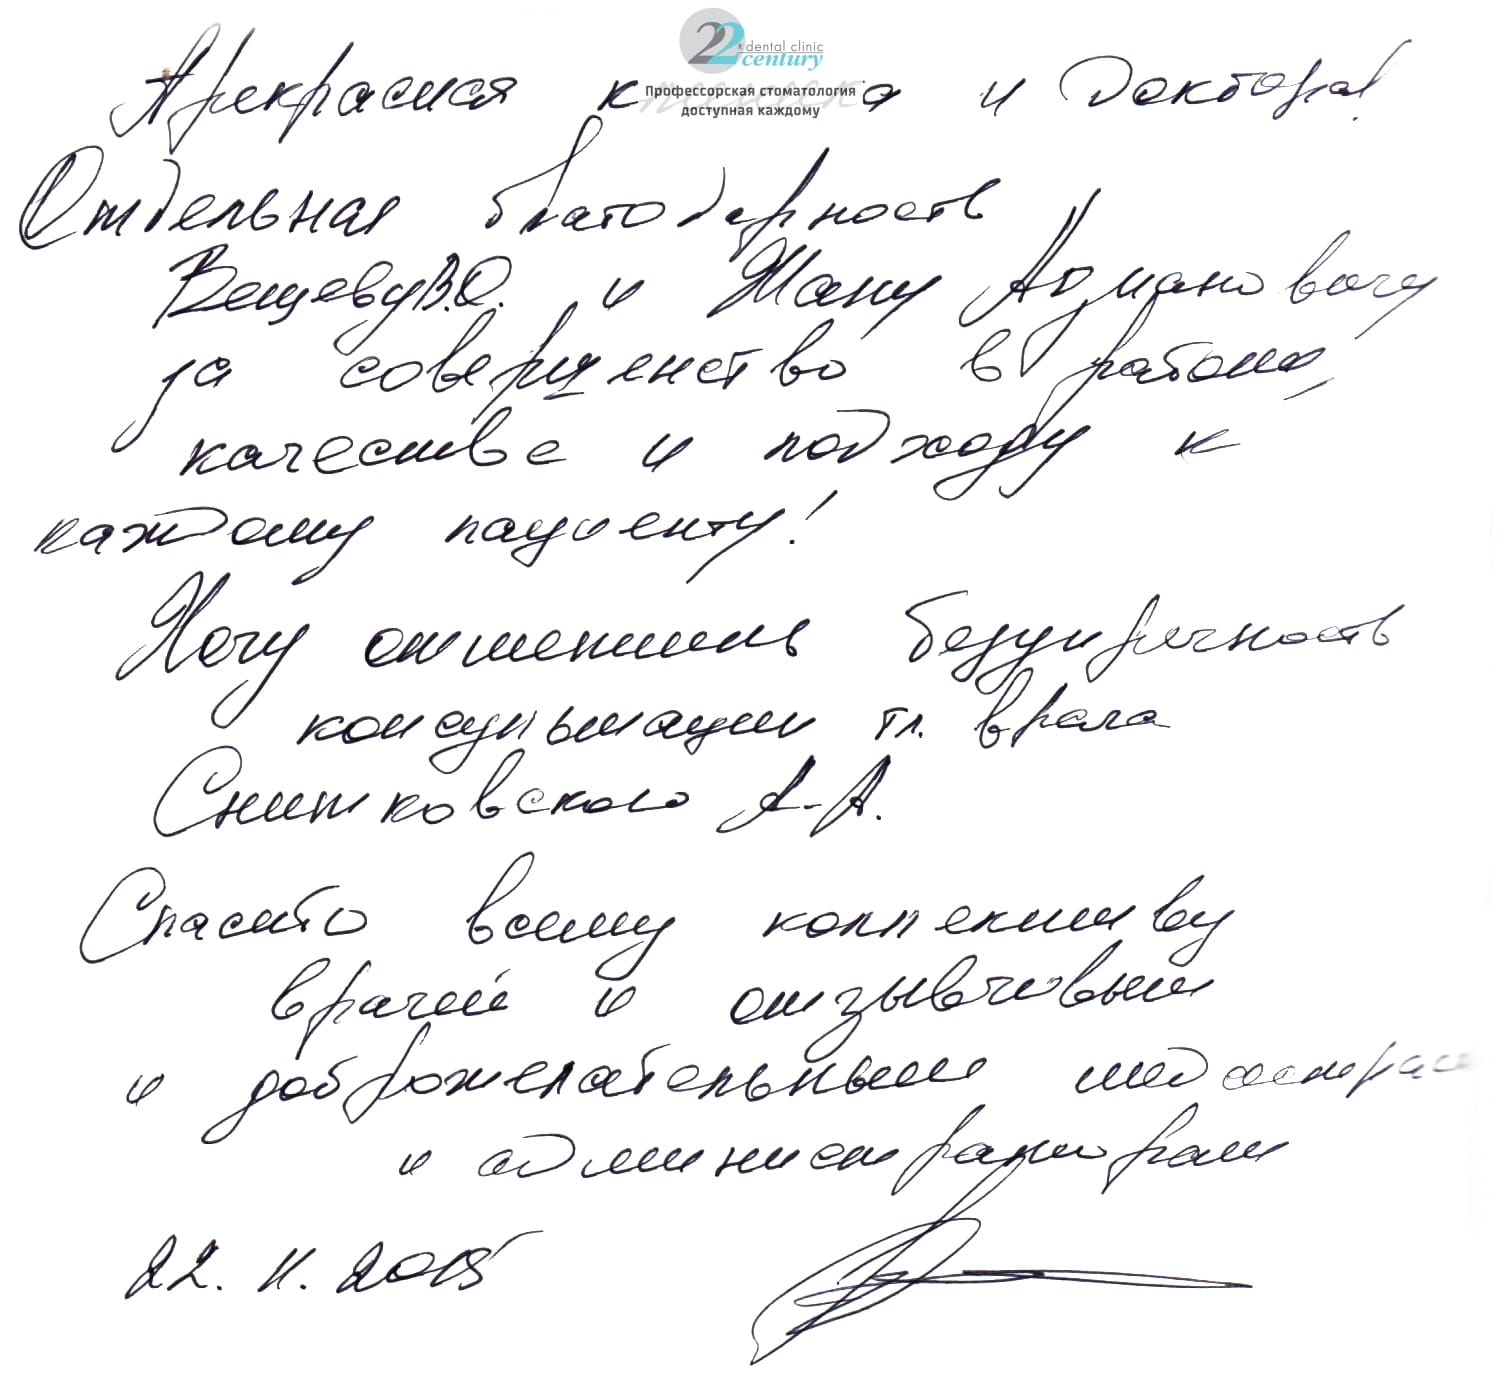 22 dental clinic
century
Профессорская стоматология
доступная каждому
Прекрасная клиника и Доктора!
Отдельная благодарность
Вещеву В.О. и Жану Армановичу
за совершенство в работе,
качестве и подходу к
каждому пациенту!
Хочу отметить безупречность
консультации гл. врача
Снитковского А.А.
Спасибо всему коллективу
врачей и отзывчивым
и доброжелательным медсестрам
и администраторам
22.11.2015